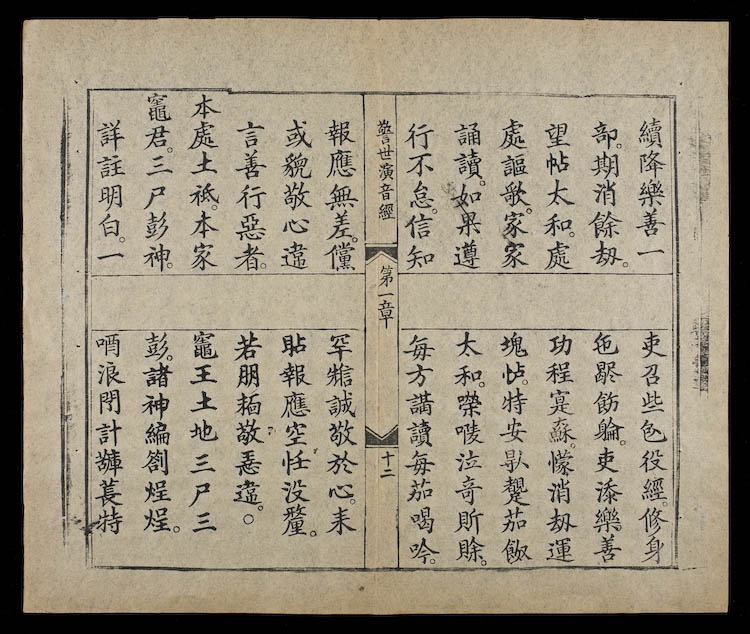 續降樂善一
部。期消餘刼。
望帖太和。處
處謳歌。家家
誦讀。如果遵
行不怠。信知
吏召些役經。修身
飭。吏添樂善
功程寔蘇。懞消刼運
塊。特安茄
太和。泣奇賖。
每方講讀每茄喝吟。
警世演音經
第一章
十二
報應無差。儻
或貌敬心違
言善行惡者。
本處土祇。本家
竈君。三尸彭神。
詳註明白。一
罕誠敬於心。耒
貼報應空任没釐。
若朋敬違。
竈王土地三尸三
彭。諸神編劄煌煌。
浪計特